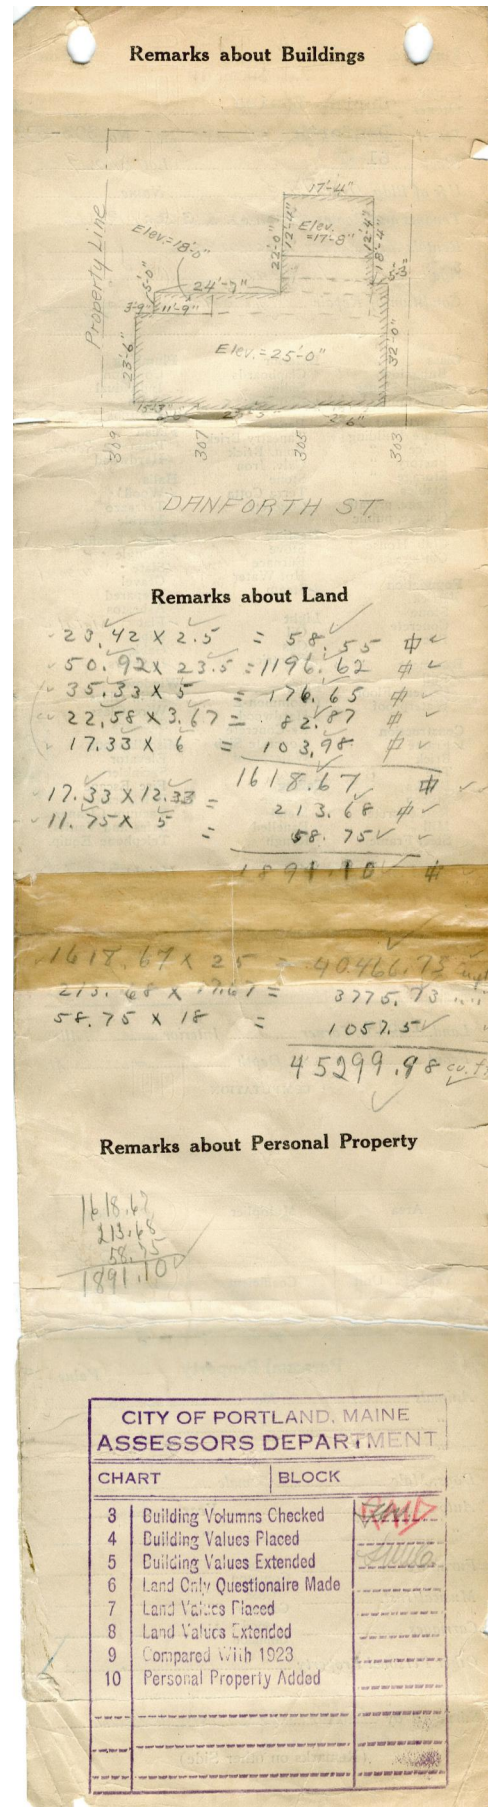 Remarks about Buildings
17'-4"
Elev.
=17'-8"
12'-4"
12'-4"
18'-4"
22'-0"
Elev.=18'-0"
5'-0"
24'-7"
5'-3"
3'-9"
11'-9"
Property Line
23'-6"
Elev.=25'-0"
32'-0"
15'-3"
2'-6"
309
307
305
303
DANFORTH ST
Remarks about Land
23.42 X 2.5 = 58.55
50.92 X 23.5 = 1196.62
35.33 X 5 = 176.65
22.58 X 3.67 = 82.87
17.33 X 6 = 103.98
1618.67
17.33 X 12.33 = 213.68
11.75 X 5 = 58.75
1891.10
1618.67 X 25 = 40466.75
213.68 X 17.67 = 3775.73
58.75 X 18 = 1057.5
45299.98 cu.ft
Remarks about Personal Property
1618.67
213.68
58.75
1891.10
CITY OF PORTLAND, MAINE
ASSESSORS DEPARTMENT
CHART BLOCK
3 Building Volumns Checked
4 Building Values Placed
5 Building Values Extended
6 Land Only Questionaire Made
7 Land Values Placed
8 Land Values Extended
9 Compared With 1923
10 Personal Property Added